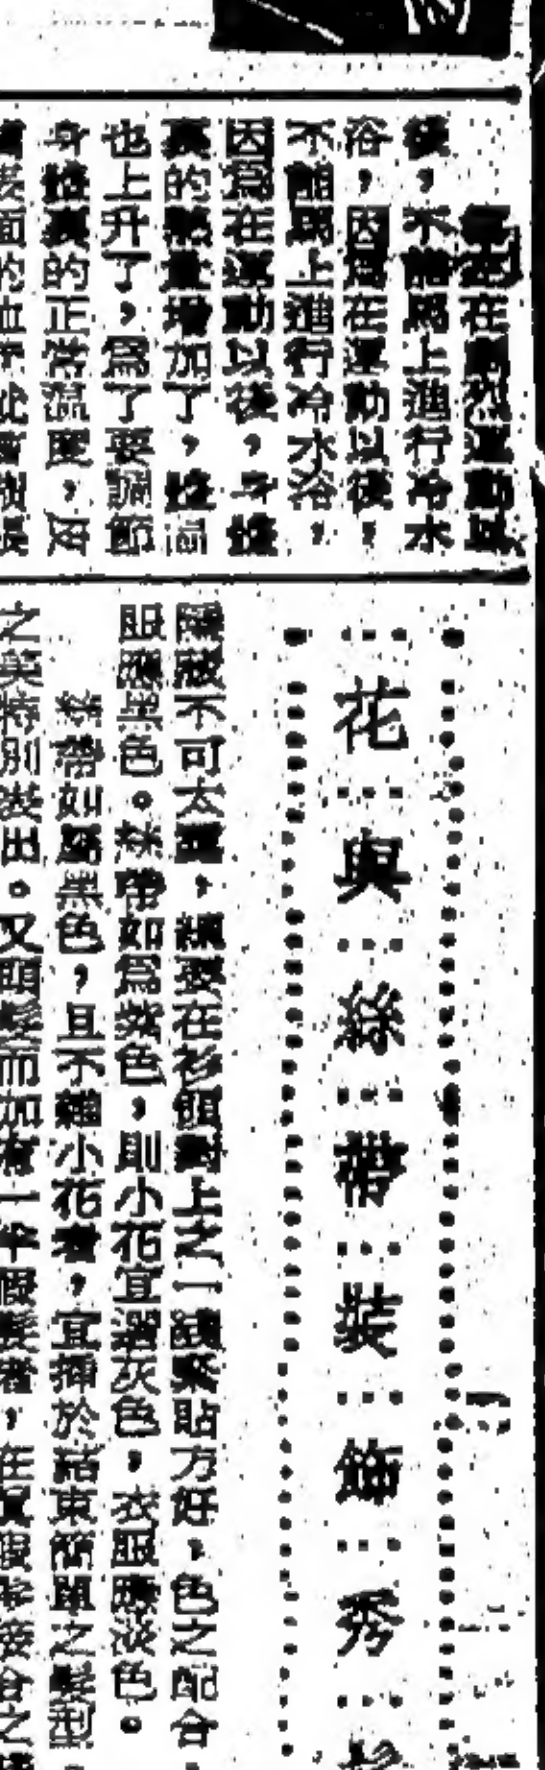 在劇烈運動以
後，不能馬上進行冷水
浴，因爲在運動以後，
不能馬上進行冷水浴，
因爲在運動以後，身體
裏的熱量增加了，體溫
也上升了，爲了要調節
身體裏的正常溫度，皮
表面的血
花與絲帶裝飾秀髮
隱蔽不可太露，須要在衫領對上之一綫緊貼方好，色之配合，
服應黑色。絲帶如爲紫色，則小花宜選灰色，衣服應淡色。
絲帶如屬黑色，且不雜小花者，宜插於結束簡單之髮型，
之美特別出。又頭髮而加有一假髮者，在假接合之